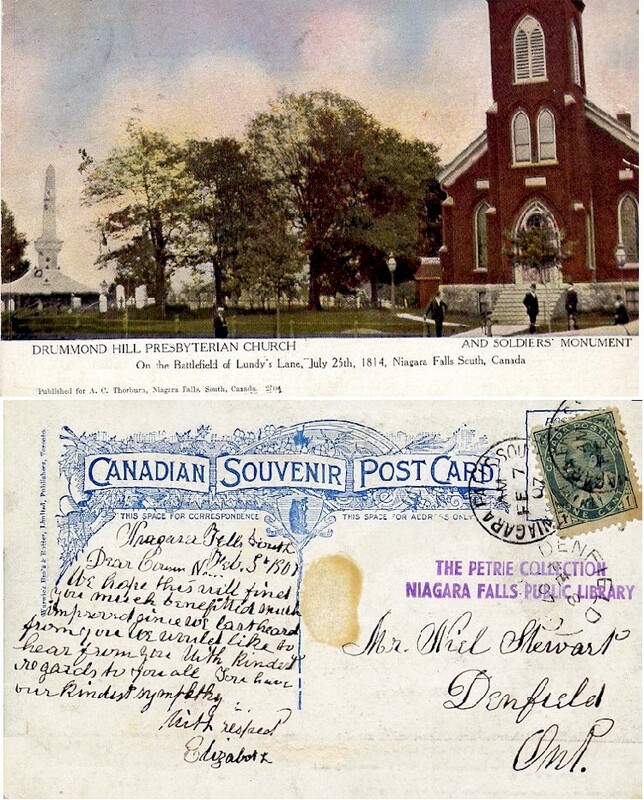 DRUMMOND HILL PRESBYTERIAN CHURCH AND SOLDIERS' MONUMENT
On the Battlefield of Lundy's Lane, July 25th, 1814, Niagara Falls South, Canada
Published for A. C. Thorburn, Niagara Falls, South, Canada.
Warwick Bro's & Rutter, Limited, Publishers, Toronto.
CANADIAN SOUVENIR POST CARD
THIS SPACE FOR CORRESPONDENCE
THIS SPACE FOR ADDRESS ONLY
NIAGARA FALLS SOUTH
AM
FE 7
07
CANADA POSTAGE
ONE CENT
DENFIELD
THE PETRIE COLLECTION
NIAGARA FALLS PUBLIC LIBRARY
Niagara Falls South
Feb. 5th 1907
Dear
We hope this will find
you much benefitted much
improved since we last heard
from you We would like to
hear from you With kindest
regards to you all You have
our kindest sympathy
With respect
Elizabeth
Mr. Wiel Stewart
Denfield
Ont.